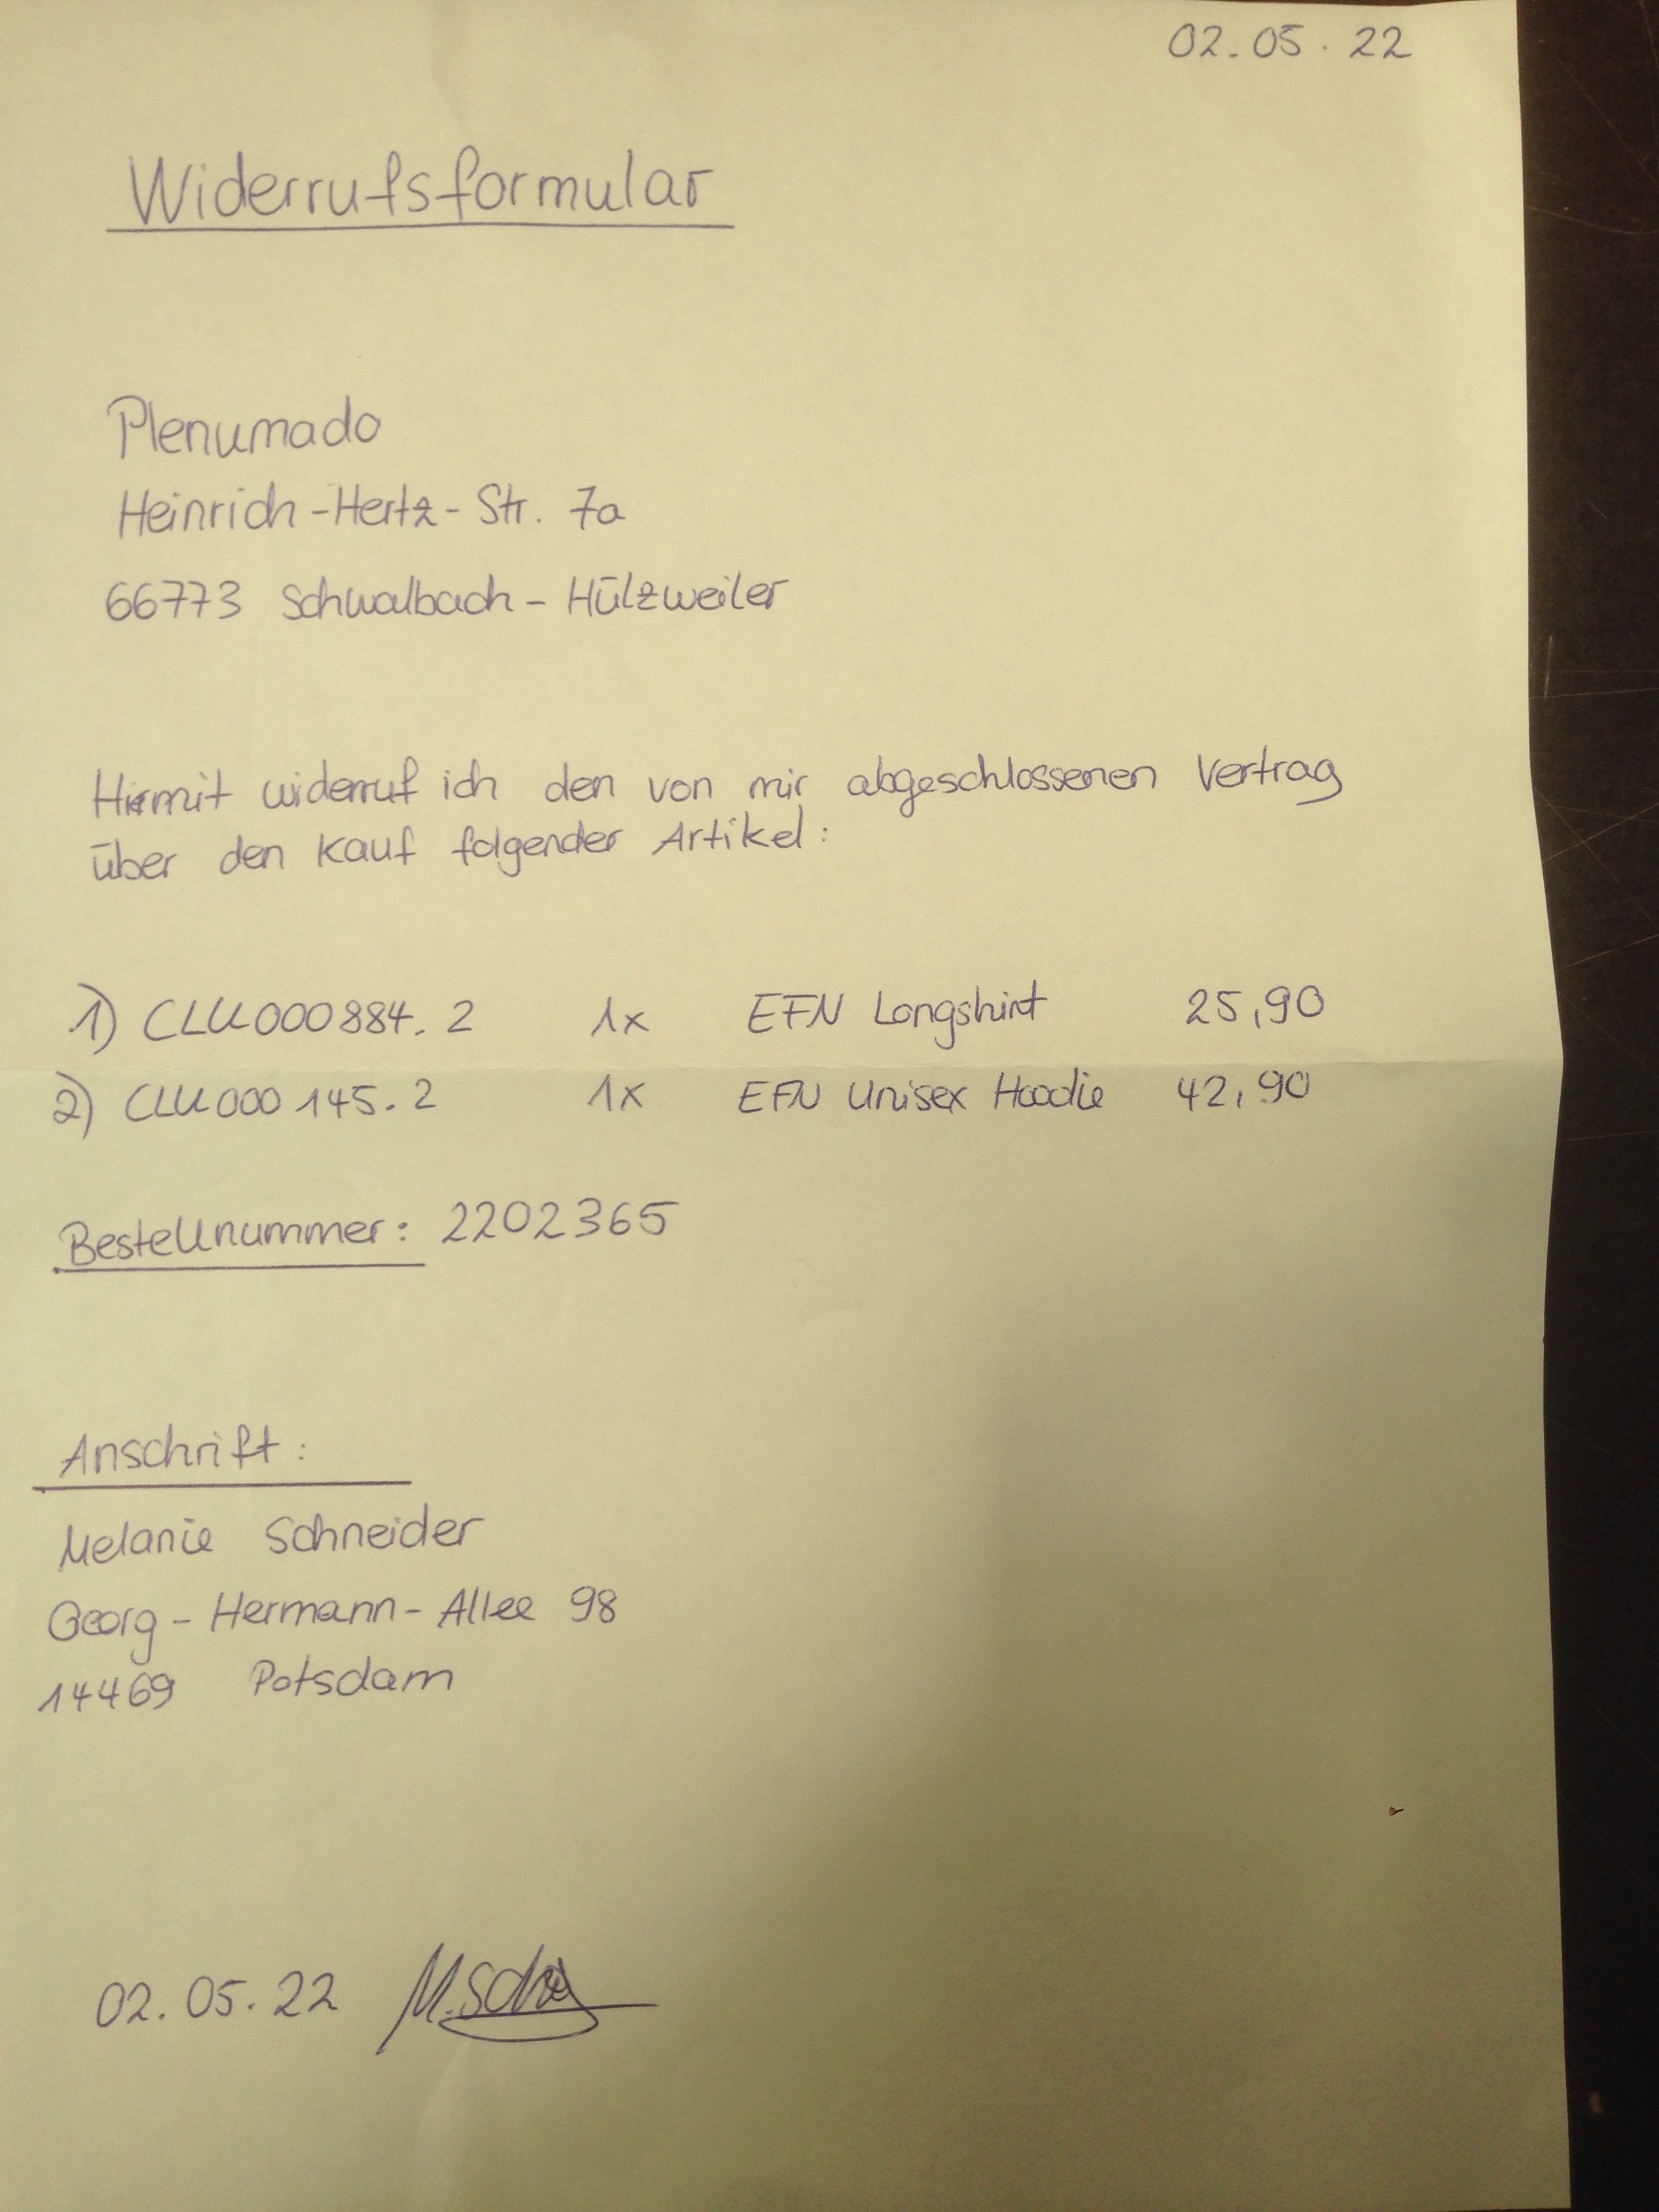 02.05.22
Widerrufsformular
Plenumado
Heinrich-Hertz-Str. 7a
66773 Schwalbach-Hülzweiler
Hiermit widerruf ich den von mir abgeschlossenen Vertrag
über den Kauf folgender Artikel:
1) CLU000884.2 1x EFN Longshirt 25,90
2) CLU000145.2 1x EFN Unisex Hoodie 42,90
Bestellnummer: 2202365
Anschrift:
Melanie Schneider
Georg-Hermann-Allee 98
14469 Potsdam
02.05.22